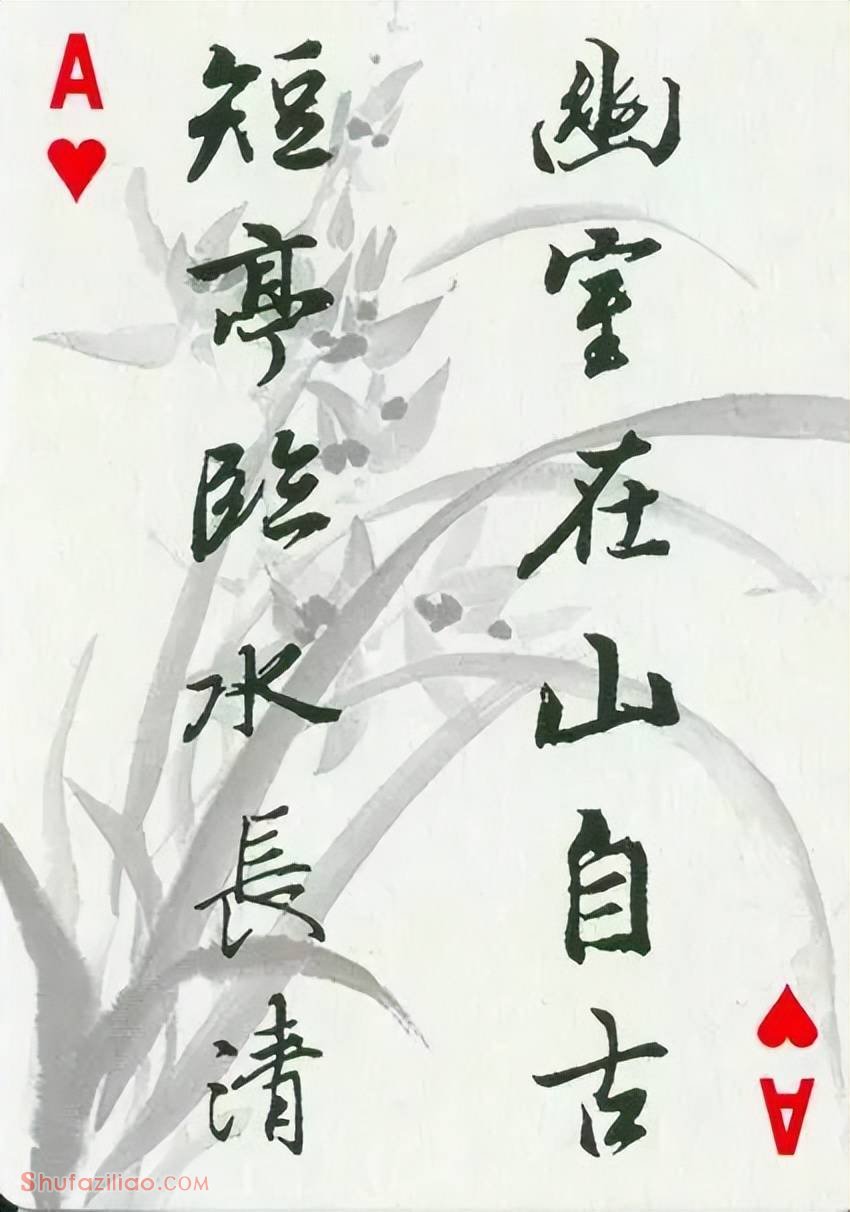 A
幽室在山自古
短亭臨水長清
A
Shufaziliao.COM